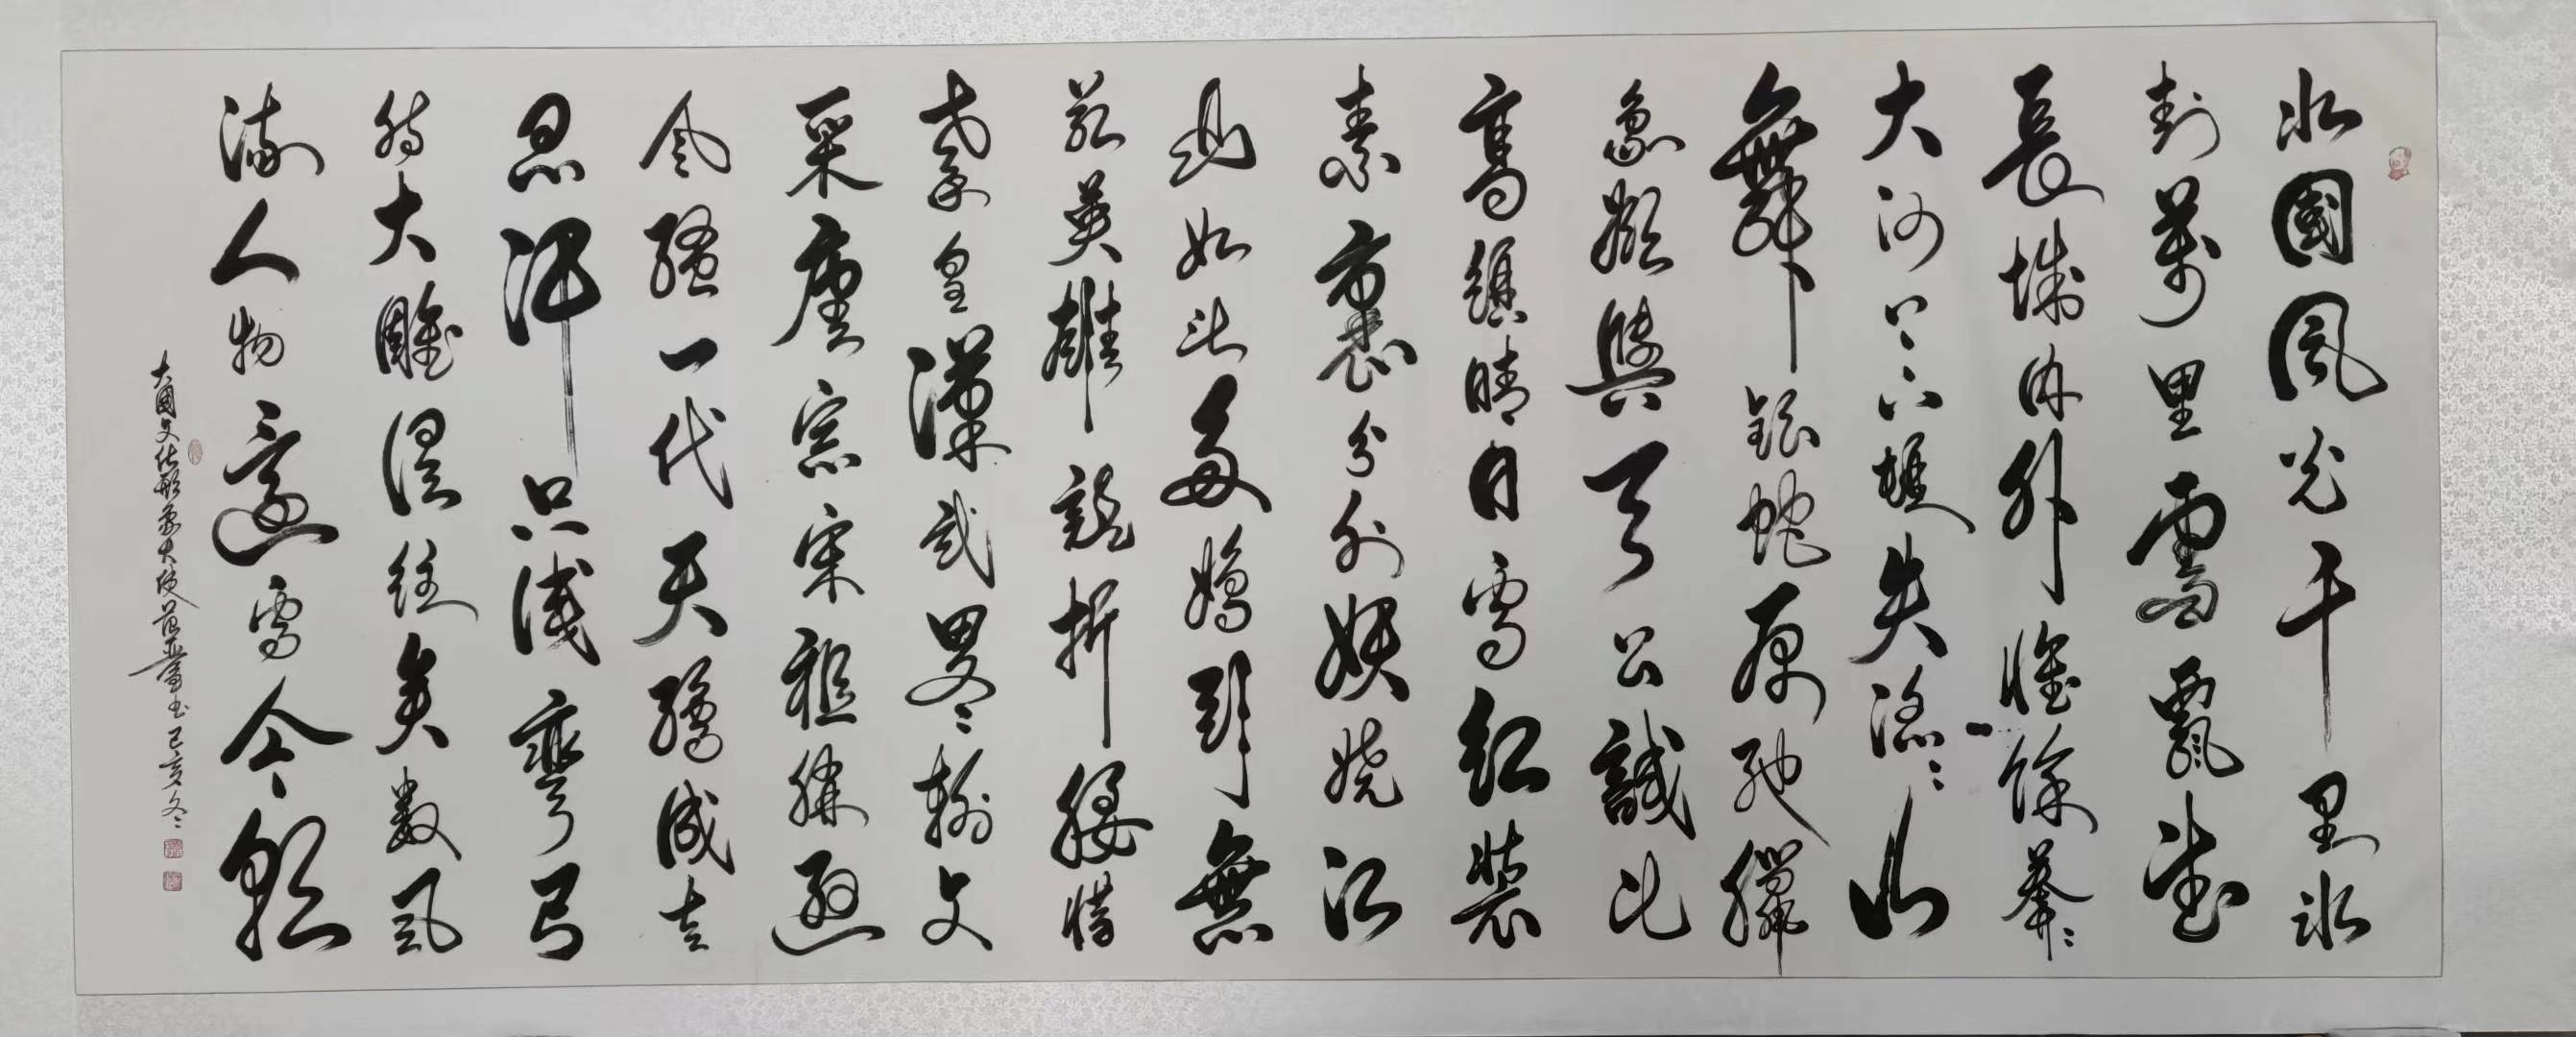 北國風光千里冰
封萬里雪飄望
長城內外惟餘莽々
大河上下頓失滔々山
舞銀蛇原馳臘
象欲與天公試比
高須晴日看紅裝
素裹分外妖嬈江
山如此多嬌引無
數英雄競折腰惜
秦皇漢武略輸文
采唐宗宋祖稍遜
風騷一代天驕成吉
思汗只識彎弓
射大雕俱往矣數風
流人物還看今朝
大國文化形象大使范書己亥冬